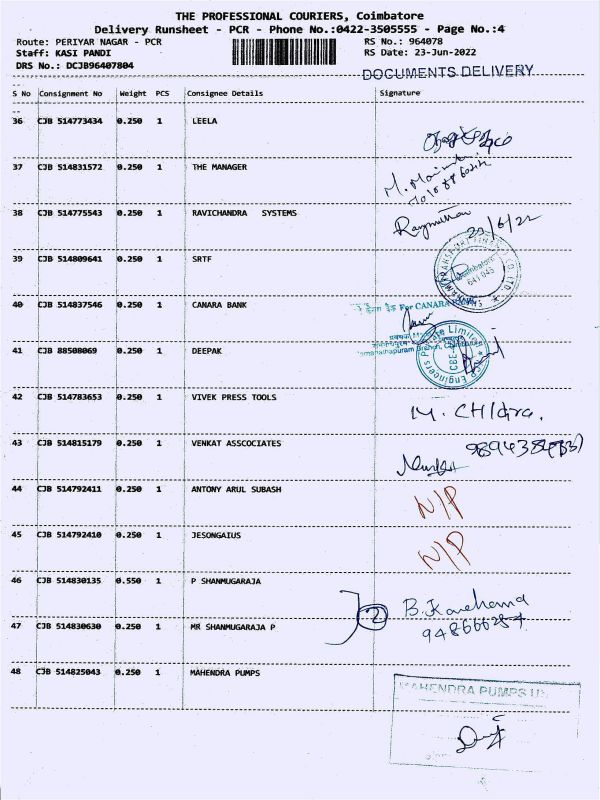 THE PROFESSIONAL COURIERS, Coimbatore
Delivery Runsheet - PCR - Phone No.:0422-3505555 - Page No.:4
Route: PERIYAR NAGAR - PCR RS No.: 964078
Staff: KASI PANDI RS Date: 23-Jun-2022
DRS No.: DCJB96407804
DOCUMENTS DELIVERY
S No Consignment No Weight PCS Consignee Details Signature
36 CJB 514773434 0.250 1 LEELA
37 CJB 514831572 0.250 1 THE MANAGER
38 CJB 514775543 0.250 1 RAVICHANDRA SYSTEMS
23/6/22
39 CJB 514809641 0.250 1 SRTF
641 045
40 CJB 514837546 0.250 1 CANARA BANK
For CANARA
41 CJB 88508069 0.250 1 DEEPAK
Engineers Private Limited
CBE
42 CJB 514783653 0.250 1 VIVEK PRESS TOOLS
43 CJB 514815179 0.250 1 VENKAT ASSCOCIATES
44 CJB 514792411 0.250 1 ANTONY ARUL SUBASH N/P
45 CJB 514792410 0.250 1 JESONGAIUS N/P
46 CJB 514830135 0.550 1 P SHANMUGARAJA
2
47 CJB 514830630 0.250 1 MR SHANMUGARAJA P
48 CJB 514825043 0.250 1 MAHENDRA PUMPS
MAHENDRA PUMPS